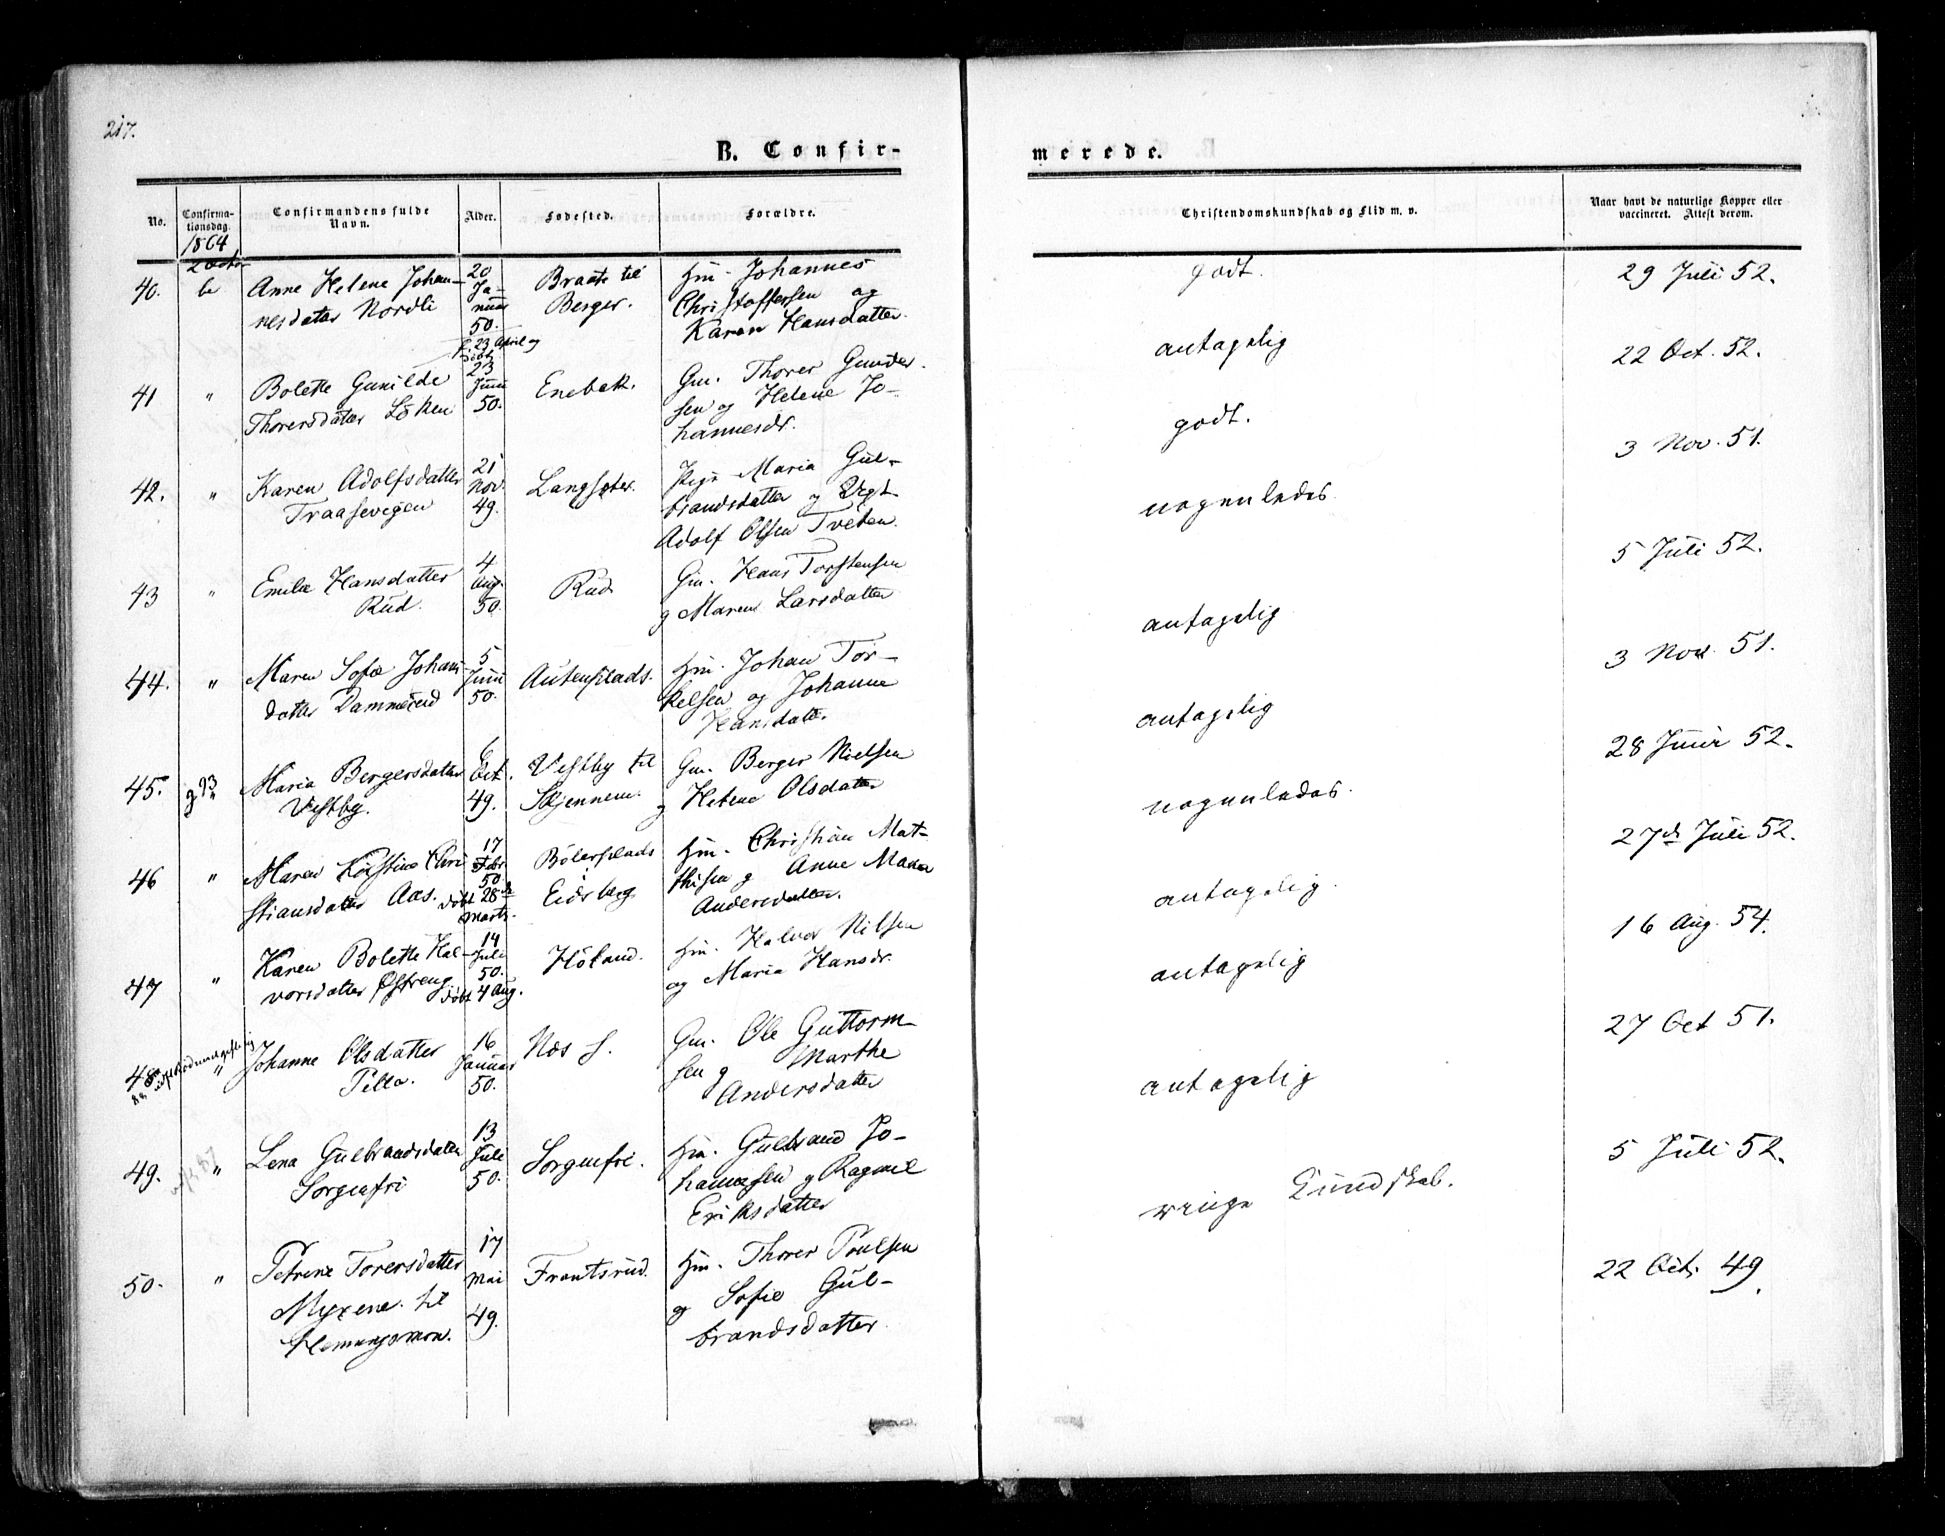 217.
B. Confir-
merede.
No.
Confirma-
tionsdag.
Confirmandens fulde
Navn.
Alder.
Fødested.
Forældre.
Christendomskundskab og Flid m. v.
Naar havt de naturlige Kopper eller
vaccineret. Attest derom.
1864
2 Octor
40.
Anne Helene Johan-
nesdatter Nordli
20
Ja-
nuar
50.
Braate til
Berger.
Hm. Johannes
Christoffersen og
Karen Hansdatter.
godt.
29 Juli 52.
41 "
Bolette Gunilde
Thorersdatter Löken
f. 23 April og
döbt
23
Juni
50.
Enebak.
Gm. Thorer Gunder-
sen og Helene Jo-
hannesdr.
antagelig
22 Oct. 52.
42. "
Karen Adolfsdatter
Traasevigen
21
Nov.
49.
Langseter.
Pige Maria Gul-
brandsdatter og
Adolf Olsen Tveten.
godt.
3 Nov. 51.
43 "
Emilie Hansdatter
Rud.
4
Aug.
50.
Rud
Gm. Hans Torstensen
g Maren Larsdatter
nogenledes
5 Juli 52.
44. "
Maren Sofie Johans
datter Dammerud
5
Juni
50.
Autenplads.
Hm. Johan Tor-
kelsen og Johanne
Hansdatter
antagelig
3 Nov. 51.
45. "
Maria Bergersdatter
Vestby.
6
Oct.
49.
Vestby til
Skjennem.
Gm. Berger Nielsen
g Helene Olsdatter
antagelig
28 Juni 52.
46 "
Maren Kirstine Chri
stiansdatter Aas.
17
Febr
50
döbt 28de
Marts.
Bölerplads
Eidsberg
Hm. Christian Mat-
thisen g Anne Maria
Andersdatter.
nogenledes.
27de Juli 52.
47 "
Karen Bolette Hal-
vorsdatter Østreng
14
Juli
50.
döbt 4 Aug.
Höland.
Hm. Halvor Nilsen
og Maria Hansdr.
antagelig.
16 Aug. 54.
48 "
Johanne Olsdatter
Pella.
16
Januar
50.
Næs S.
Gm. Ole Guttorm-
sen g Marthe
Andersdatter
antagelig
27 Oct 51.
49. "
Lena Gulbrandsdatter
Sorgenfri
13
Juli
50.
Sorgenfri.
Hm. Gulbrand Jo-
hannesen g Ragnil
Eriksdatter
antagelig
5 Juli 52.
50. "
Petrine Torersdatter
Myrene til
17
Mai
49.
Frantsrud.
Hm. Thorer Poulsen
og Sofie Gul-
brandsdatter
ringe Kundskab.
22 Oct. 49.